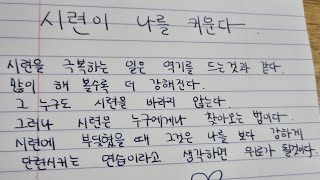 시련이 나를 키운다.
시련을 극복하는 일은 역기를 드는것과 같다.
많이 해 볼수록 더 강해진다.
그 누구도 시련을 바라지 않는다.
그러나 시련은 누구에게나 찾아오는 법이다.
시련에 부딪혔을 때 그것은 나를 보다 강하게
단련시키는 연습이라고 생각하면 위로가 될것이다.